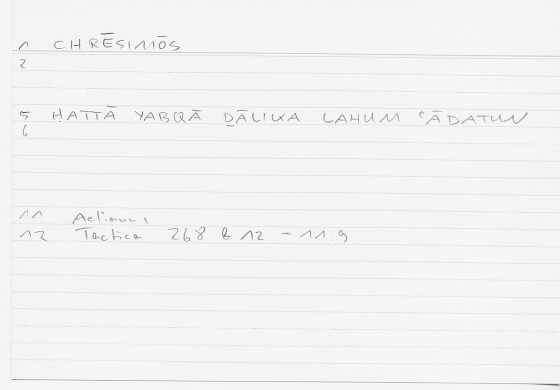 1 CHRĒSIMŌS
2
5 ḤATTĀ YABQĀ ḎĀLIKA LAHUM ʿĀDATUN
6
11 Aelianus
12 Tactica 268 B 12 = 11.9